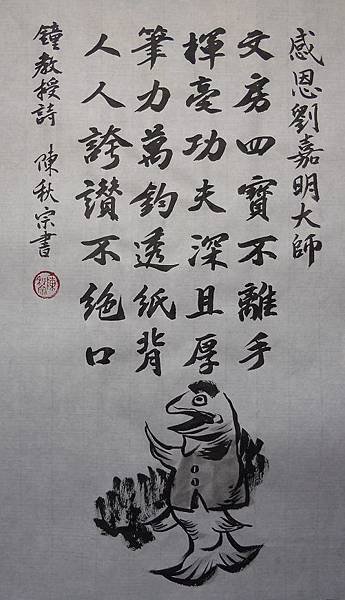 感恩劉嘉明大師
文房四寶不離手
揮毫功夫深且厚
筆力萬鈞透紙背
人人誇讚不絕口
鐘教授詩 陳秋宗書